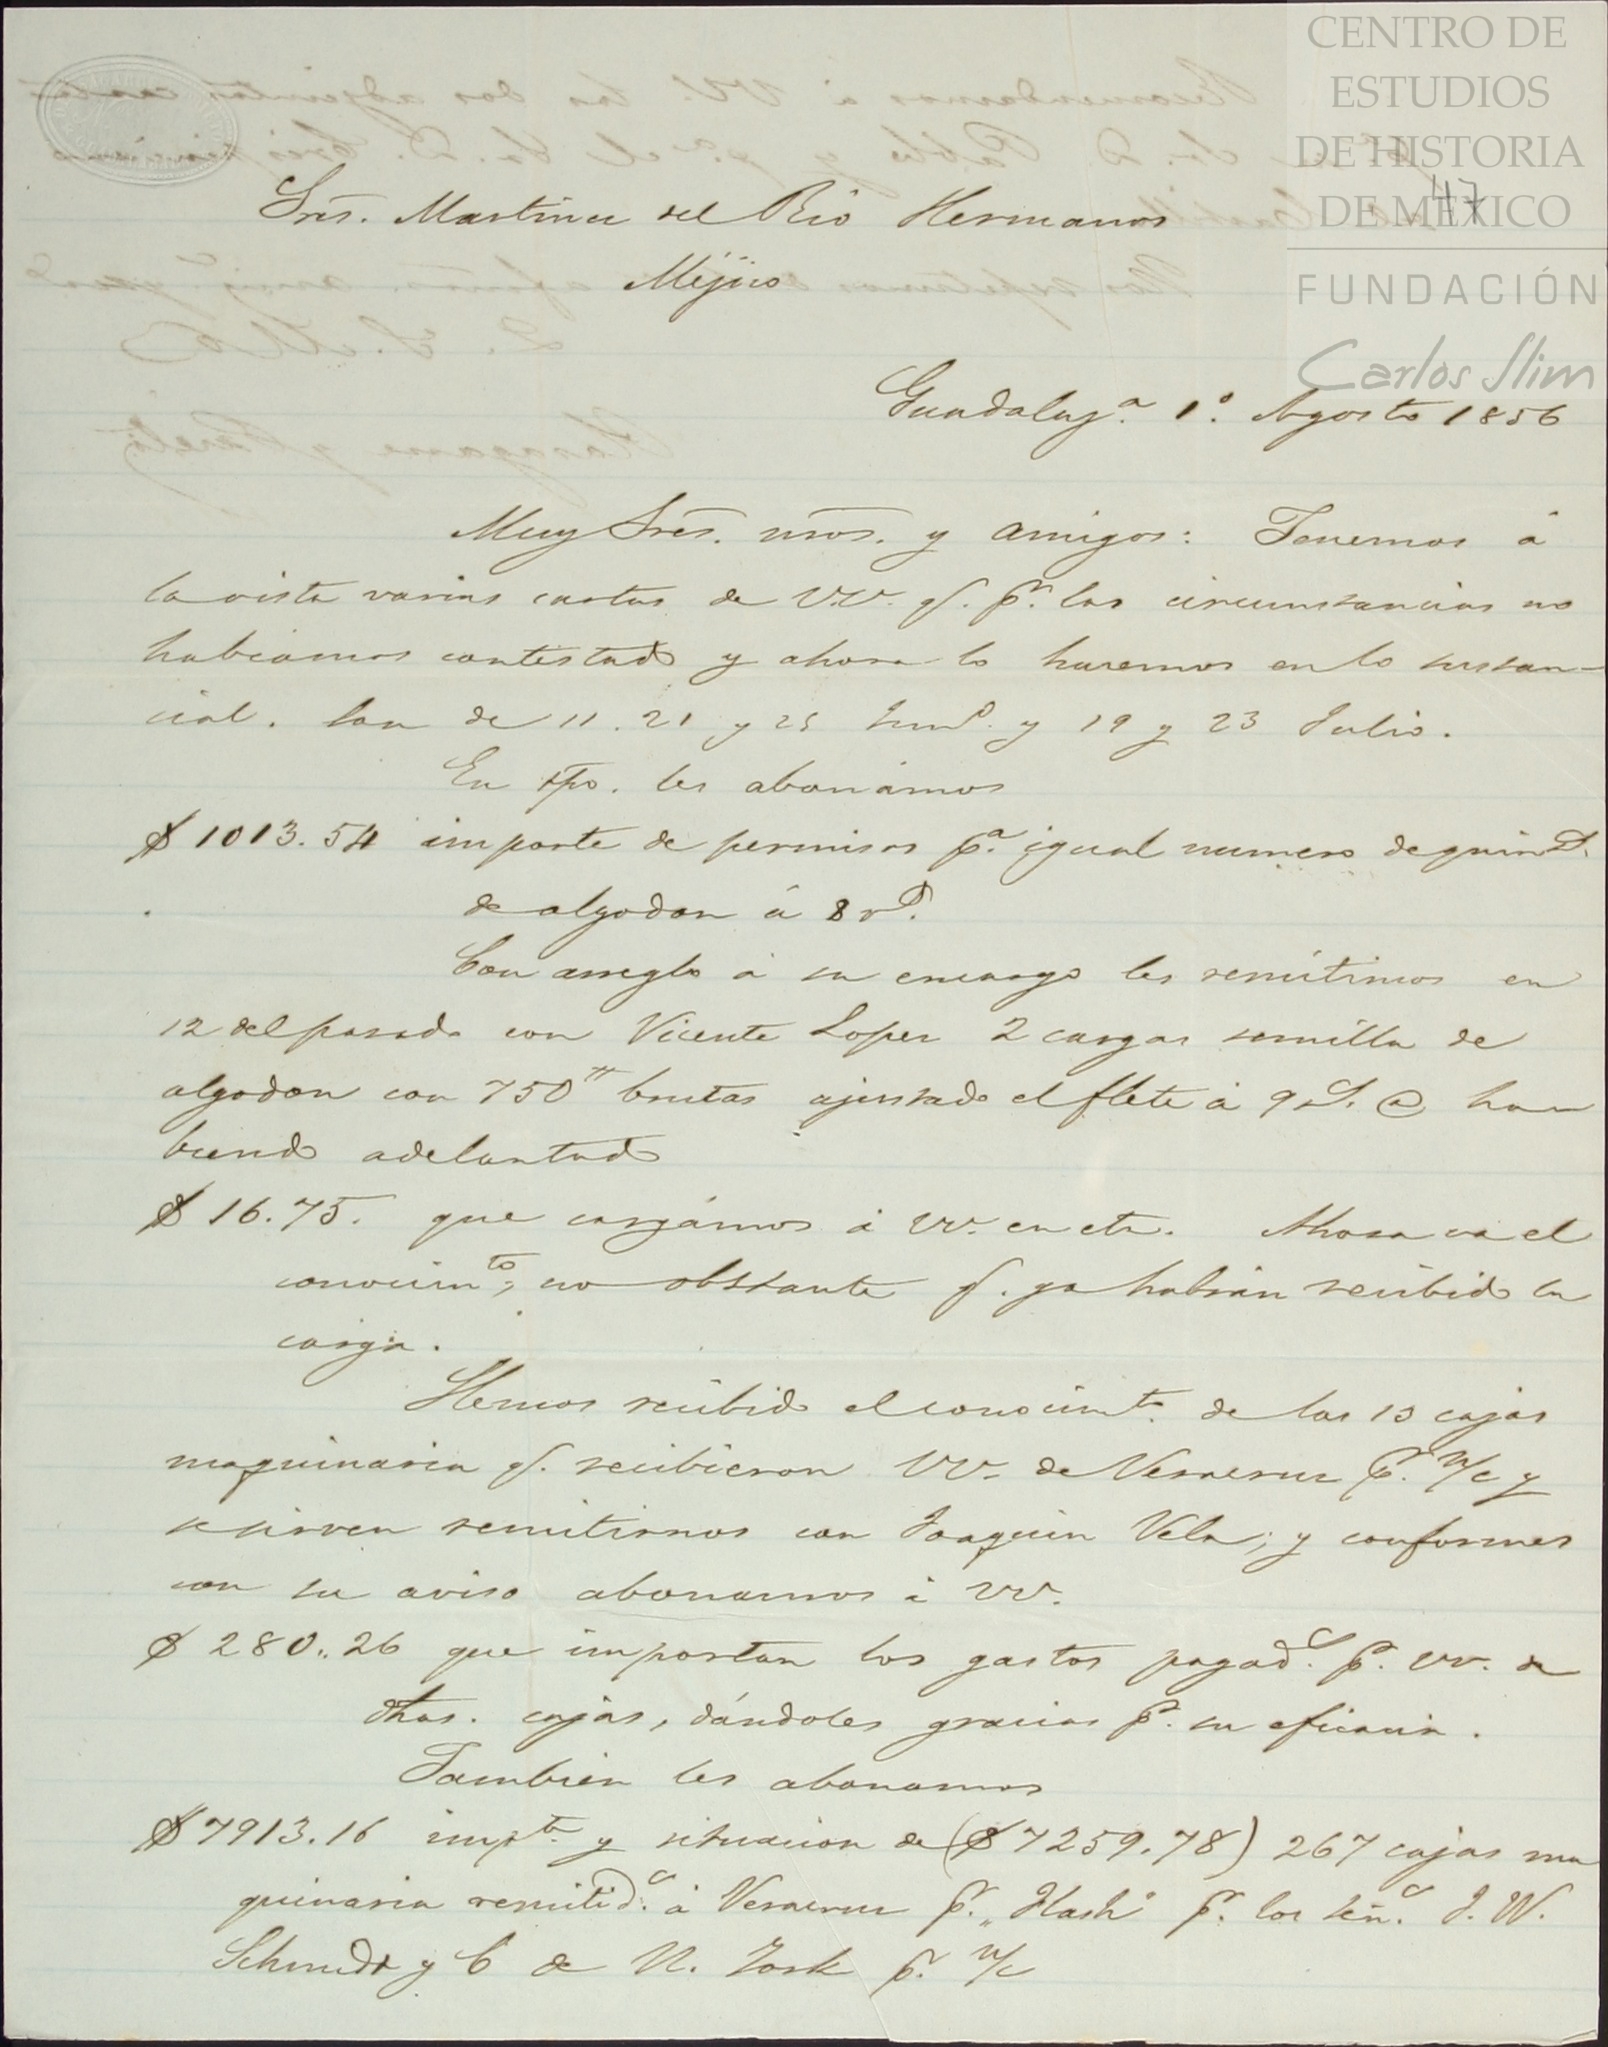 CENTRO DE
ESTUDIOS
DE HISTORIA
DE MÉXICO
FUNDACIÓN
Carlos Slim
47
Sres. Martinez del Rio Hermanos
Méjico
Guadalaj.a 1.o Agosto 1856
Muy Sres. nros. y amigos: Tenemos á
la vista varias cartas de VV. q. pr. las circunstancias no
habiamos contestado y ahora lo haremos en lo sustan-
cial. Son de 11. 21 y 25 Jun.o y 19 y 23 Julio.
En rpo. les abonámos
$ 1013.54 importe de permisos p.a igual numero de quin.s
de algodon á 8 rs.
Con arreglo á su encargo les remitimos en
12 del pasado con Vicente Lopez 2 cargas semilla de
algodon con 750 tt brutas ajustado el flete á 9 rs. @ ha
biendo adelantado
$ 16.75. que cargámos á VV. en cta. Ahora va el
conocim.to, no obstante q. ya habrán recibido la
carga.
Hemos recibido el conocimto. de las 13 cajas
maquinaria q. recibieron VV. de Veracruz pr. n/c y
se sirven remitirnos con Joaquin Vela; y conformes
con su aviso abonamos á VV.
$ 280.26 que importan los gastos pagad.s pr. VV. de
dhas. cajas, dándoles gracias pr. su eficacia.
Tambien les abonamos
$ 7913.16 impte. y situacion de ($ 7259.78) 267 cajas ma
quinaria remitid.s á Veracruz pr. „Flash" pr. los señ.s J. W.
Schmidt y C de N. York pr. n/c